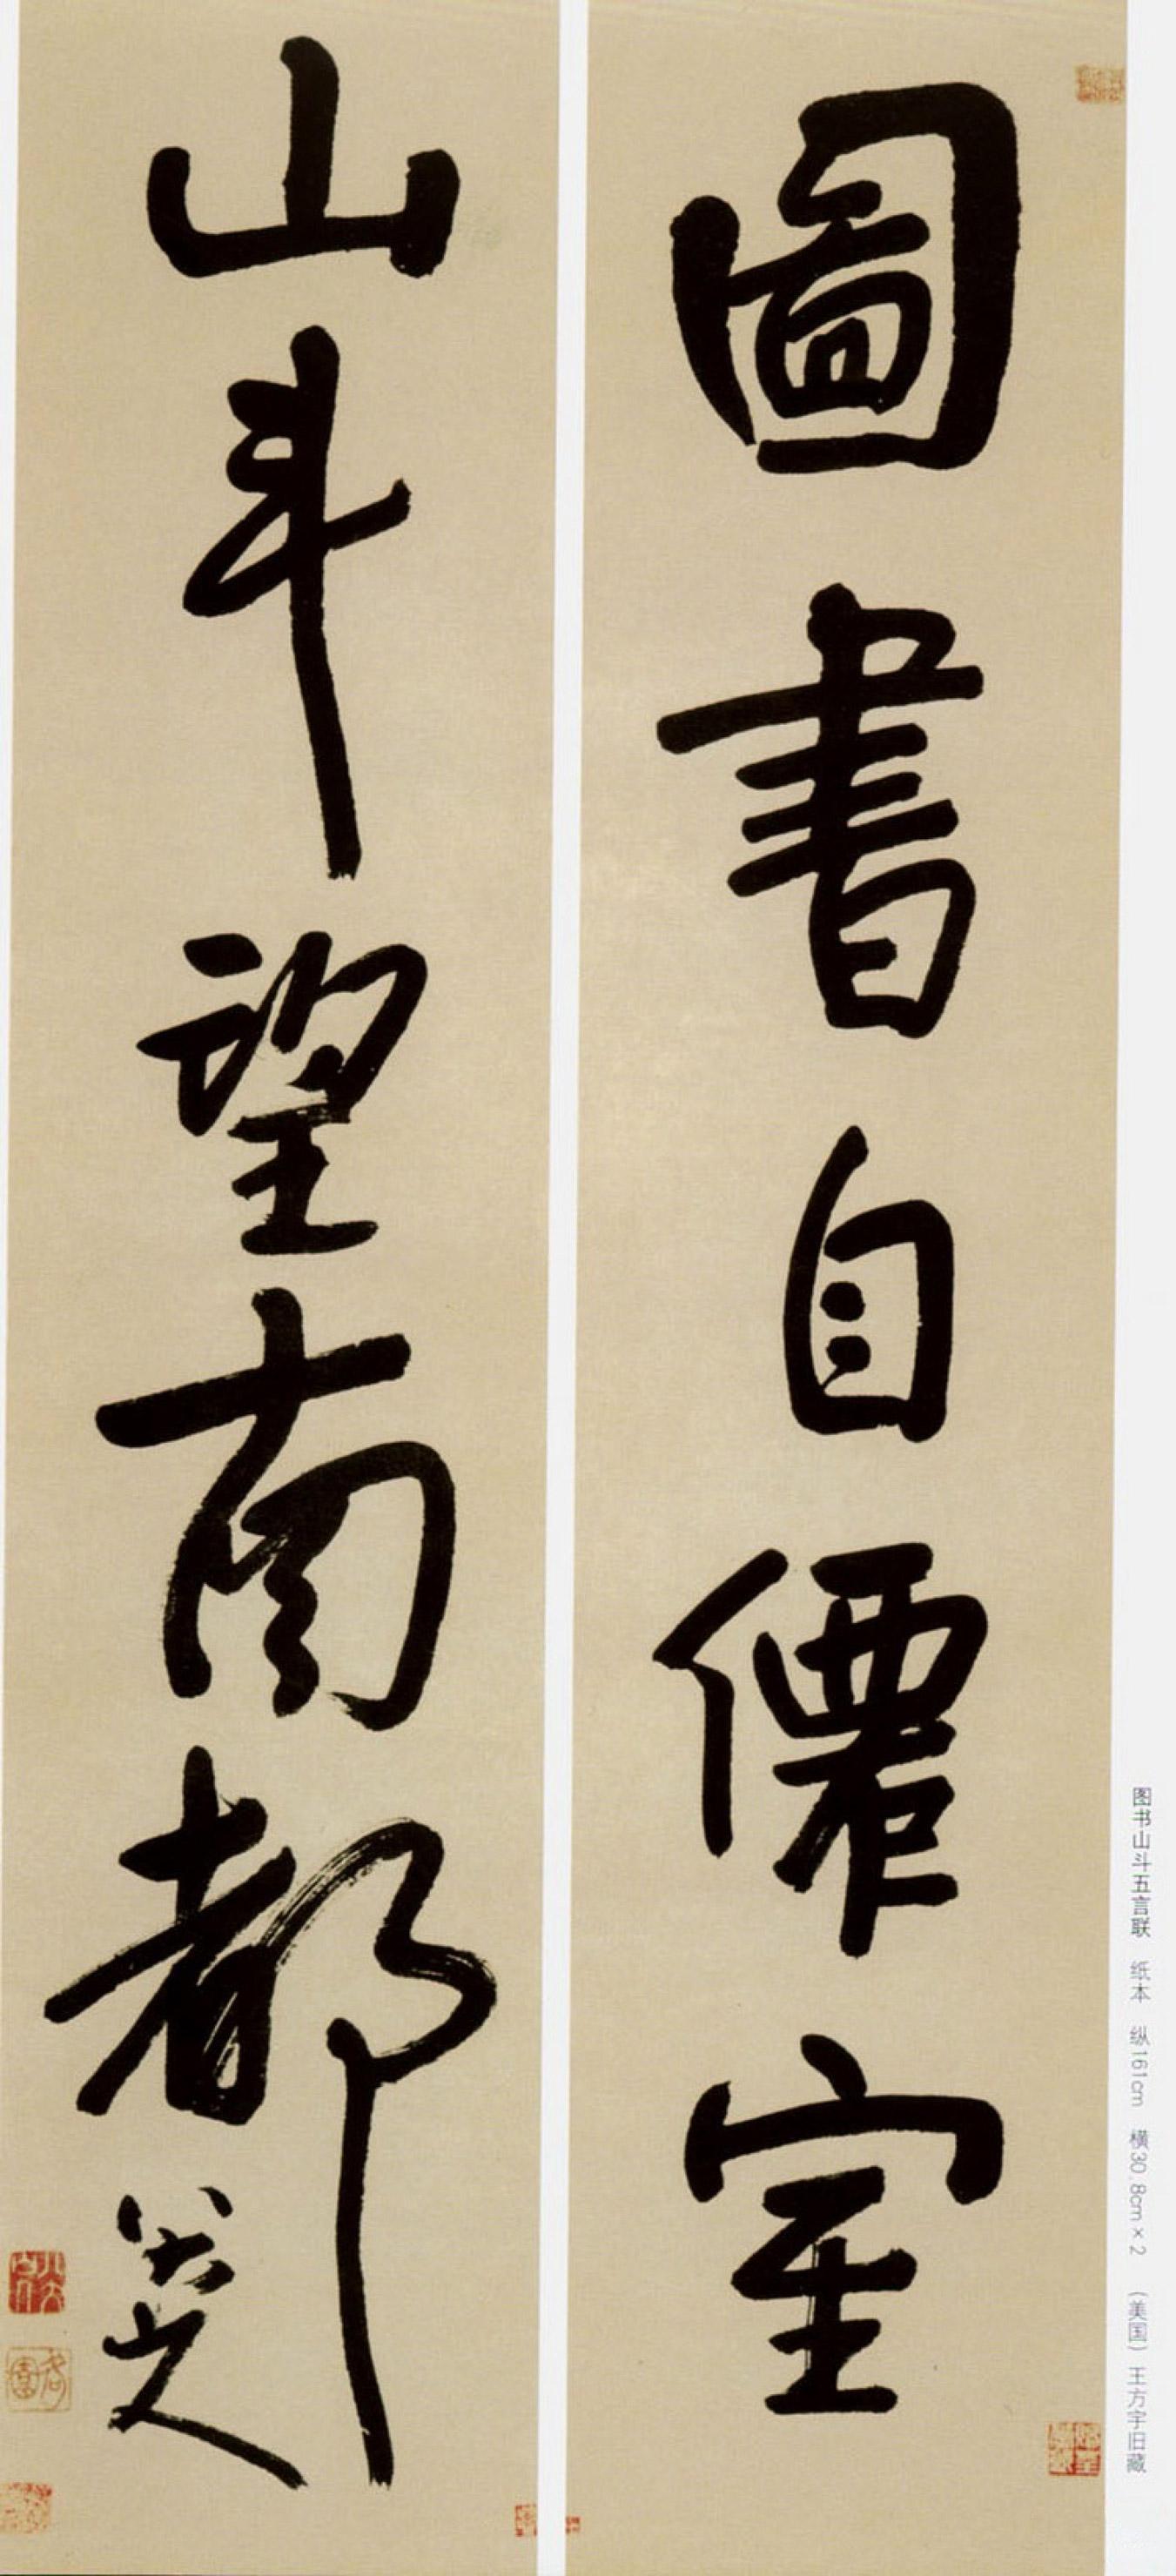 圖書自僊室
山斗望南都
八大山人
图书山斗五言联 纸本 纵161cm 横30.8cm×2 (美国)王方宇旧藏